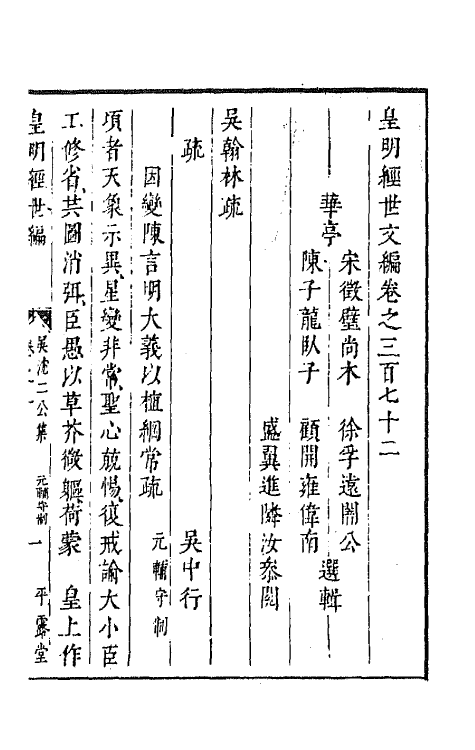 皇明經世文編卷之三百七十二
華亭
宋徵璧尚木　徐孚遠闇公
陳子龍臥子　顧開雍偉南
選輯
盛翼進隣汝叅閱
吳翰林疏
疏　吳中行
因變陳言明大義以植綱常疏　元輔守制
項者天象示異星變非常聖心兢惕復戒諭大小臣
工修省共圖消弭臣愚以草芥微軀荷蒙　皇上作
皇明經世編　吳沈二公集　元輔守制　一　平露堂